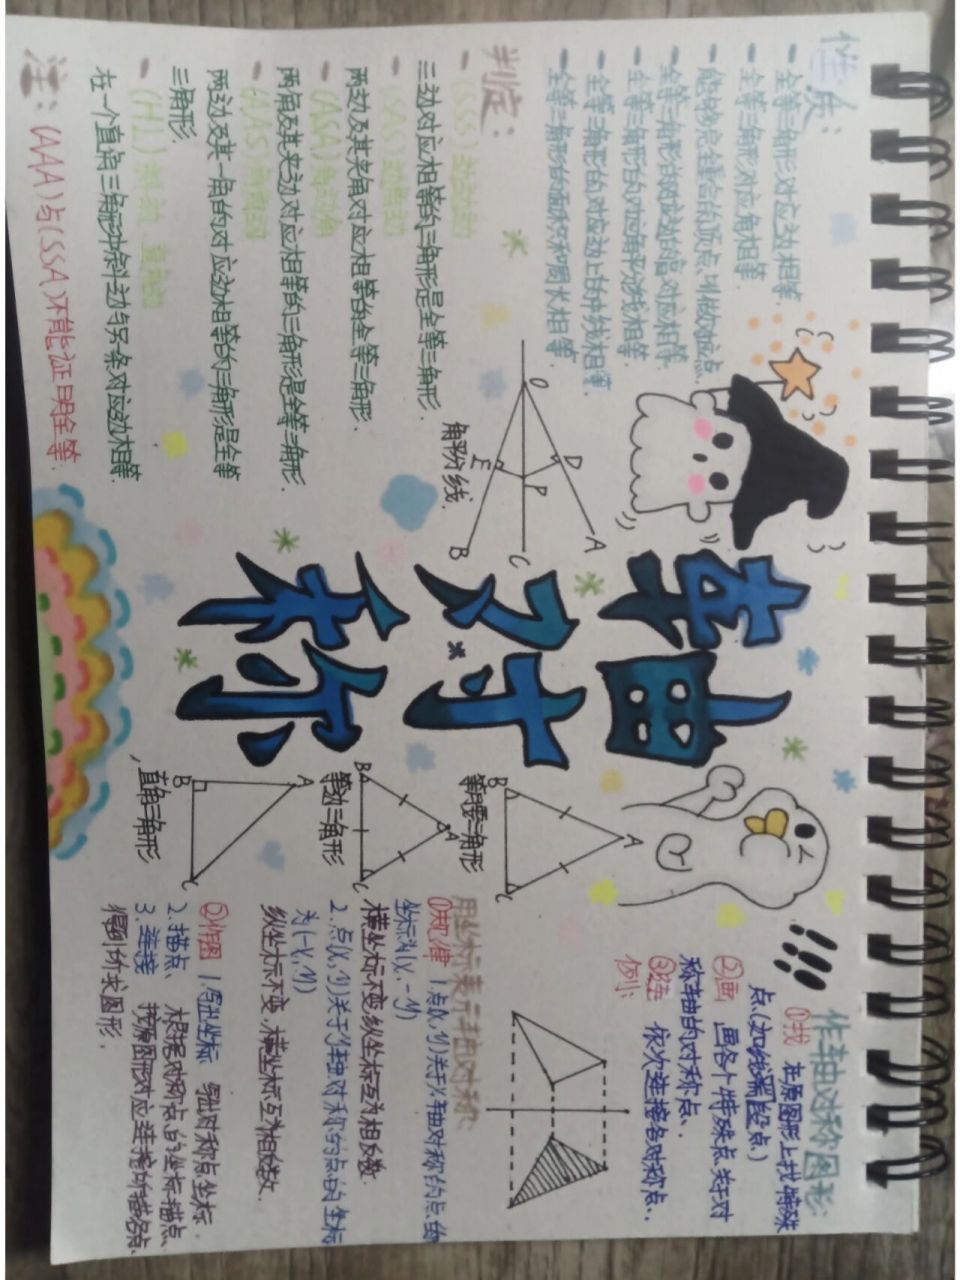 性质:
全等三角形对应边相等.
全等三角形对应角相等.
能够完全重合的顶点叫做对应点.
全等三角形的对应边的高对应相等.
全等三角形的对应角平分线相等.
全等三角形的对应边上的中线相等.
全等三角形的面积和周长相等.
判定:
(SSS)边边边
三边对应相等的三角形是全等三角形.
(SAS)边角边
两边及其夹角对应相等的全等三角形.
(ASA)角边角
两角及其夹边对应相等的三角形是全等三角形.
(AAS)角角边
两边及其一角的对应边相等的三角形是全等
三角形.
(HL)斜边、直角边
在一个直角三角形中斜边与另条对应边相等.
注:(AAA)与(SSA)不能证明全等.
O
D
A
P
C
E
B
角平分线.
轴对称
A
B
C
等腰三角形
A
B
C
等边三角形
A
B
C
直角三角形
作轴对称图形:
①找 在原图形上找特殊
点(如线段端点)
②画 画各个特殊点关于对
称轴的对称点.
③连 依次连接各对称点.
例:
用坐标表示轴对称:
①规律 1.点(x,y)关于x轴对称的点的
坐标为(x,-y)
横坐标不变,纵坐标互为相反数.
2.点(x,y)关于y轴对称的点的坐标
为(-x,y)
纵坐标不变,横坐标互为相反数.
②作图 1.定坐标
写出对称点坐标.
2.描点、根据对称点的坐标描点.
3.连接 按原图形对应连接所描各点,
得到所求图形.